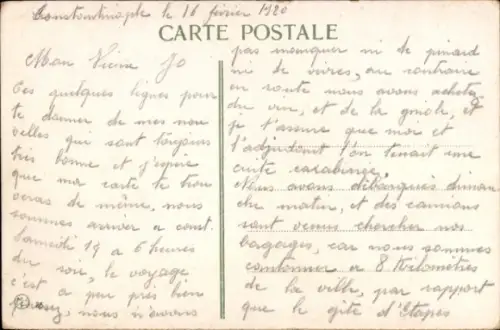 Constantinople le 16 février 1920
CARTE POSTALE
Mon Vieux Jo
Ces quelques lignes pour
te donner de mes nou
velles qui sont toujours
très bonne et j'espère
que ma carte te trou
veras de même, nous
sommes arriver a const.
Samedi 19 a 6 heures
du soir, le voyage
c'est a peu près bien
passez, nous n'avons
pas manquer ni de pinard
ni de vivres, au contraire
en route nous avons acheter
du vin, et de la gniole, et
je t'assure que moi et
l'adjudant l'on tenait une
cuite carabinée,
Nous avons débarqués diman
che matin, et des camions
sont venus chercher nos
bagages, car nous sommes
cantonner a 8 Kilomètres
de la ville, par rapport
que le gîte d'Etapes